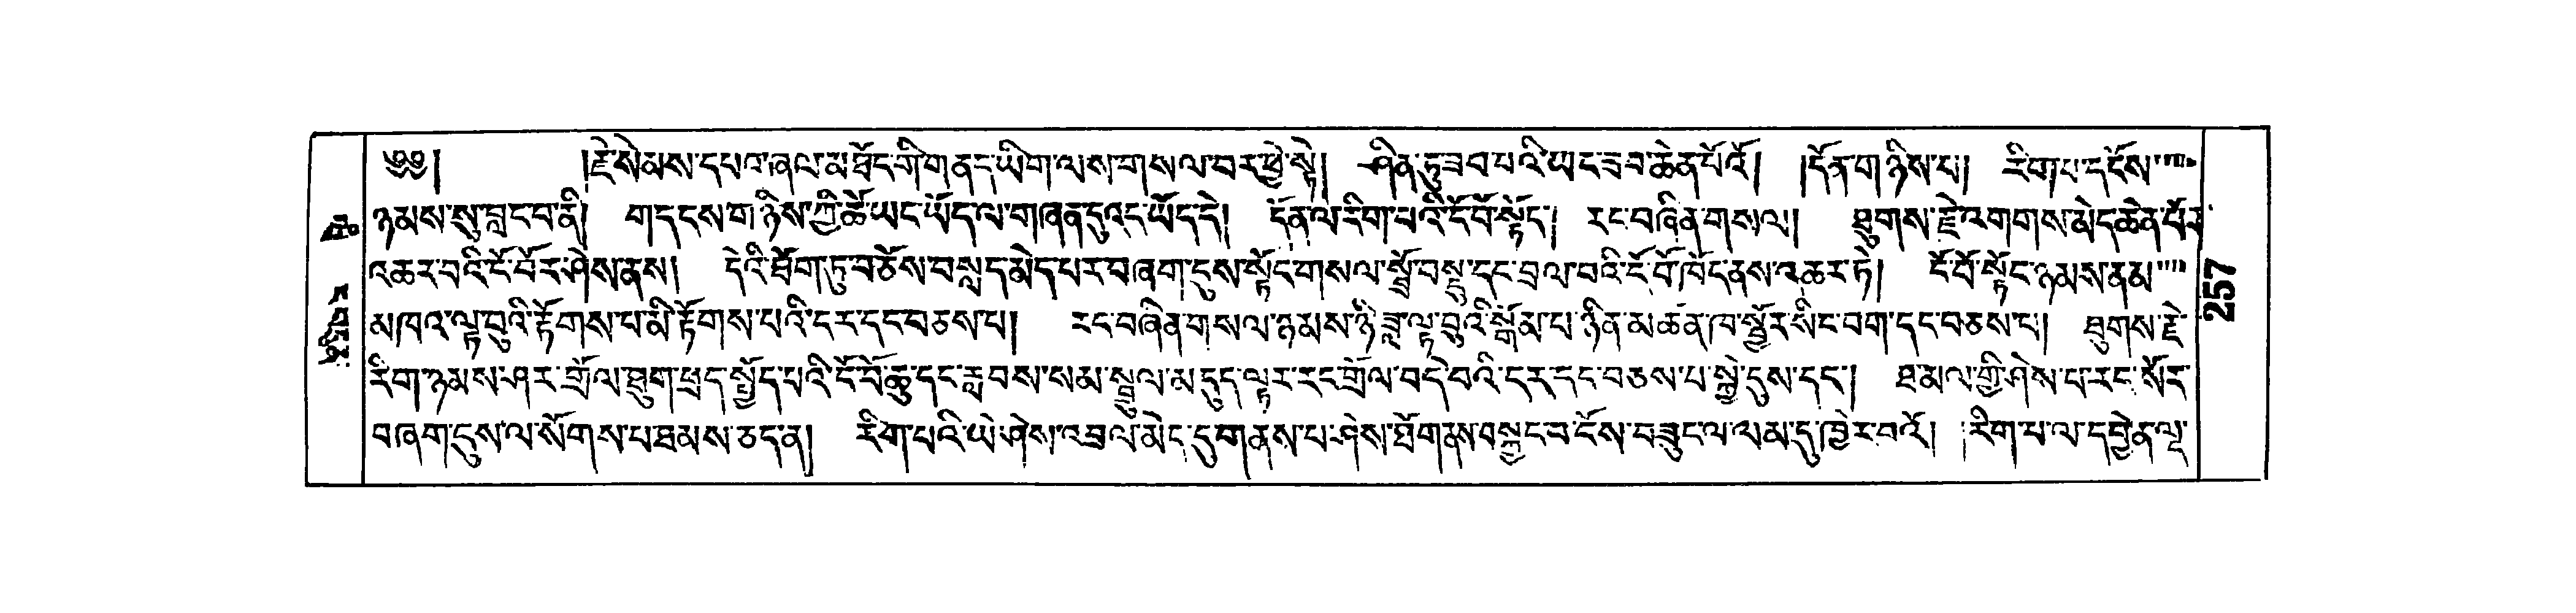 ༄༅། །རྗེ་སེམས་དཔའ་ཞལ་མཐོང་གི་གནད་ཡིག་ལས་གསལ་བར་ཕྱེ་སྟེ། ཤིན་ཏུ་ཟབ་པའི་ཡང་ཟབ་ཆེན་པོའོ། །དོན་གཉིས་པ། རིག་པ་དངོས་
ཉམས་སུ་བླང་བ་ནི། གདངས་གཉིས་ཀྱི་ཚོ་ཡང་ཡོད་ལ་གཞན་དུའང་ཡོད་དེ། དོན་ལ་རིག་པའི་ངོ་བོ་སྟོང་། རང་བཞིན་གསལ། ཐུགས་རྗེ་འགགས་མེད་ཆེན་པོར་
འཆར་བའི་ངོ་བོར་ཤེས་ནས། དེའི་ཐོག་ཏུ་བཅོས་བསླད་མེད་པར་བཞག་དུས་སྟོང་གསལ་སྤྲོ་བསྡུ་དང་བྲལ་བའི་ངོ་བོ་ཁོང་ནས་འཆར་ཏེ། ངོ་བོ་སྟོང་ཉམས་ནམ་
མཁའ་ལྟ་བུའི་རྟོགས་པ་མི་རྟོགས་པའི་དར་དང་བཅས་པ། རང་བཞིན་གསལ་ཉམས་ཉི་ཟླ་ལྟ་བུའི་སྒོམ་པ་ཉིན་མཚན་ཁ་སྦྱོར་སིང་བག་དང་བཅས་པ། ཐུགས་རྗེ་
རིག་ཉམས་ཤར་གྲོལ་ཐུག་ཕྲད་སྤྱོད་པའི་ངོ་བོ་ཆུ་དང་རླབས་སམ་སྦྲུལ་མདུད་ལྟར་རང་གྲོལ་བདེ་བའི་དར་དང་བཅས་པ་སྐྱེ་དུས་དང་། ཐ་མལ་གྱི་ཤེས་པ་རང་སོར་
བཞག་དུས་ལ་སོགས་པ་ཐམས་ཅད་ན། རིག་པའི་ཡེ་ཤེས་འབྲལ་མེད་དུ་གནས་པ་ཤེས་ཐོག་ནས་བསྐྱང་བ་ངོས་བཟུང་ལ་ལམ་དུ་ཁྱེར་བའོ། །རིག་པ་ལ་དབྱེན་ལྔ་